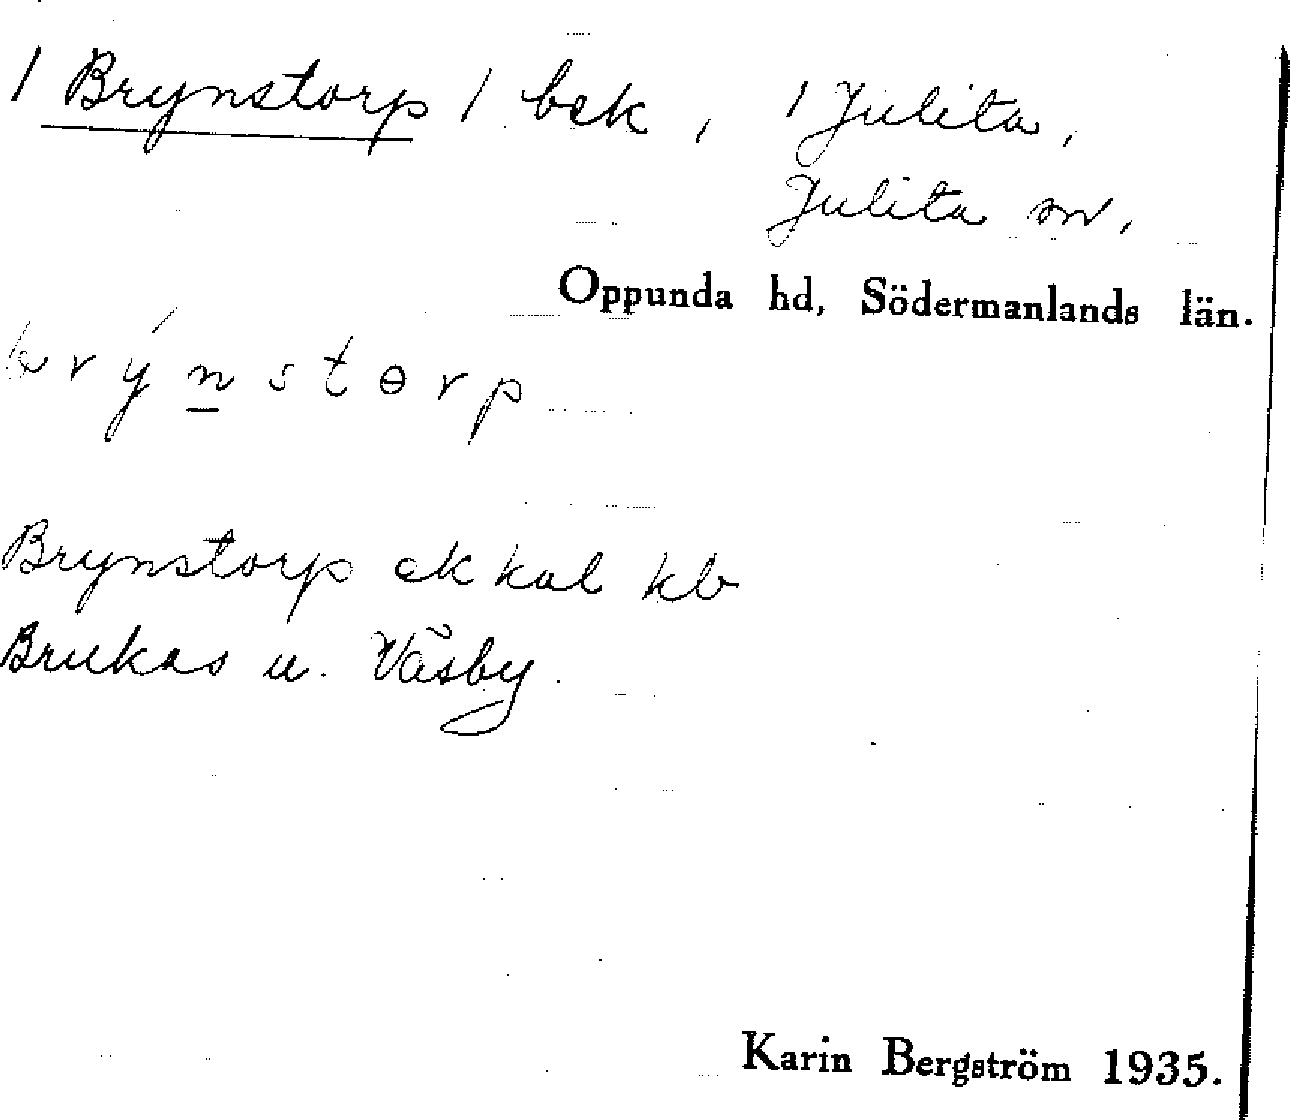 / Brynstorp / bsk, / Julita,
Julita sn,
Oppunda hd, Södermanlands län.
brýn̲stɵrp
Brynstorp ek kal kb
Brukas u. Väsby.
Karin Bergström 1935.